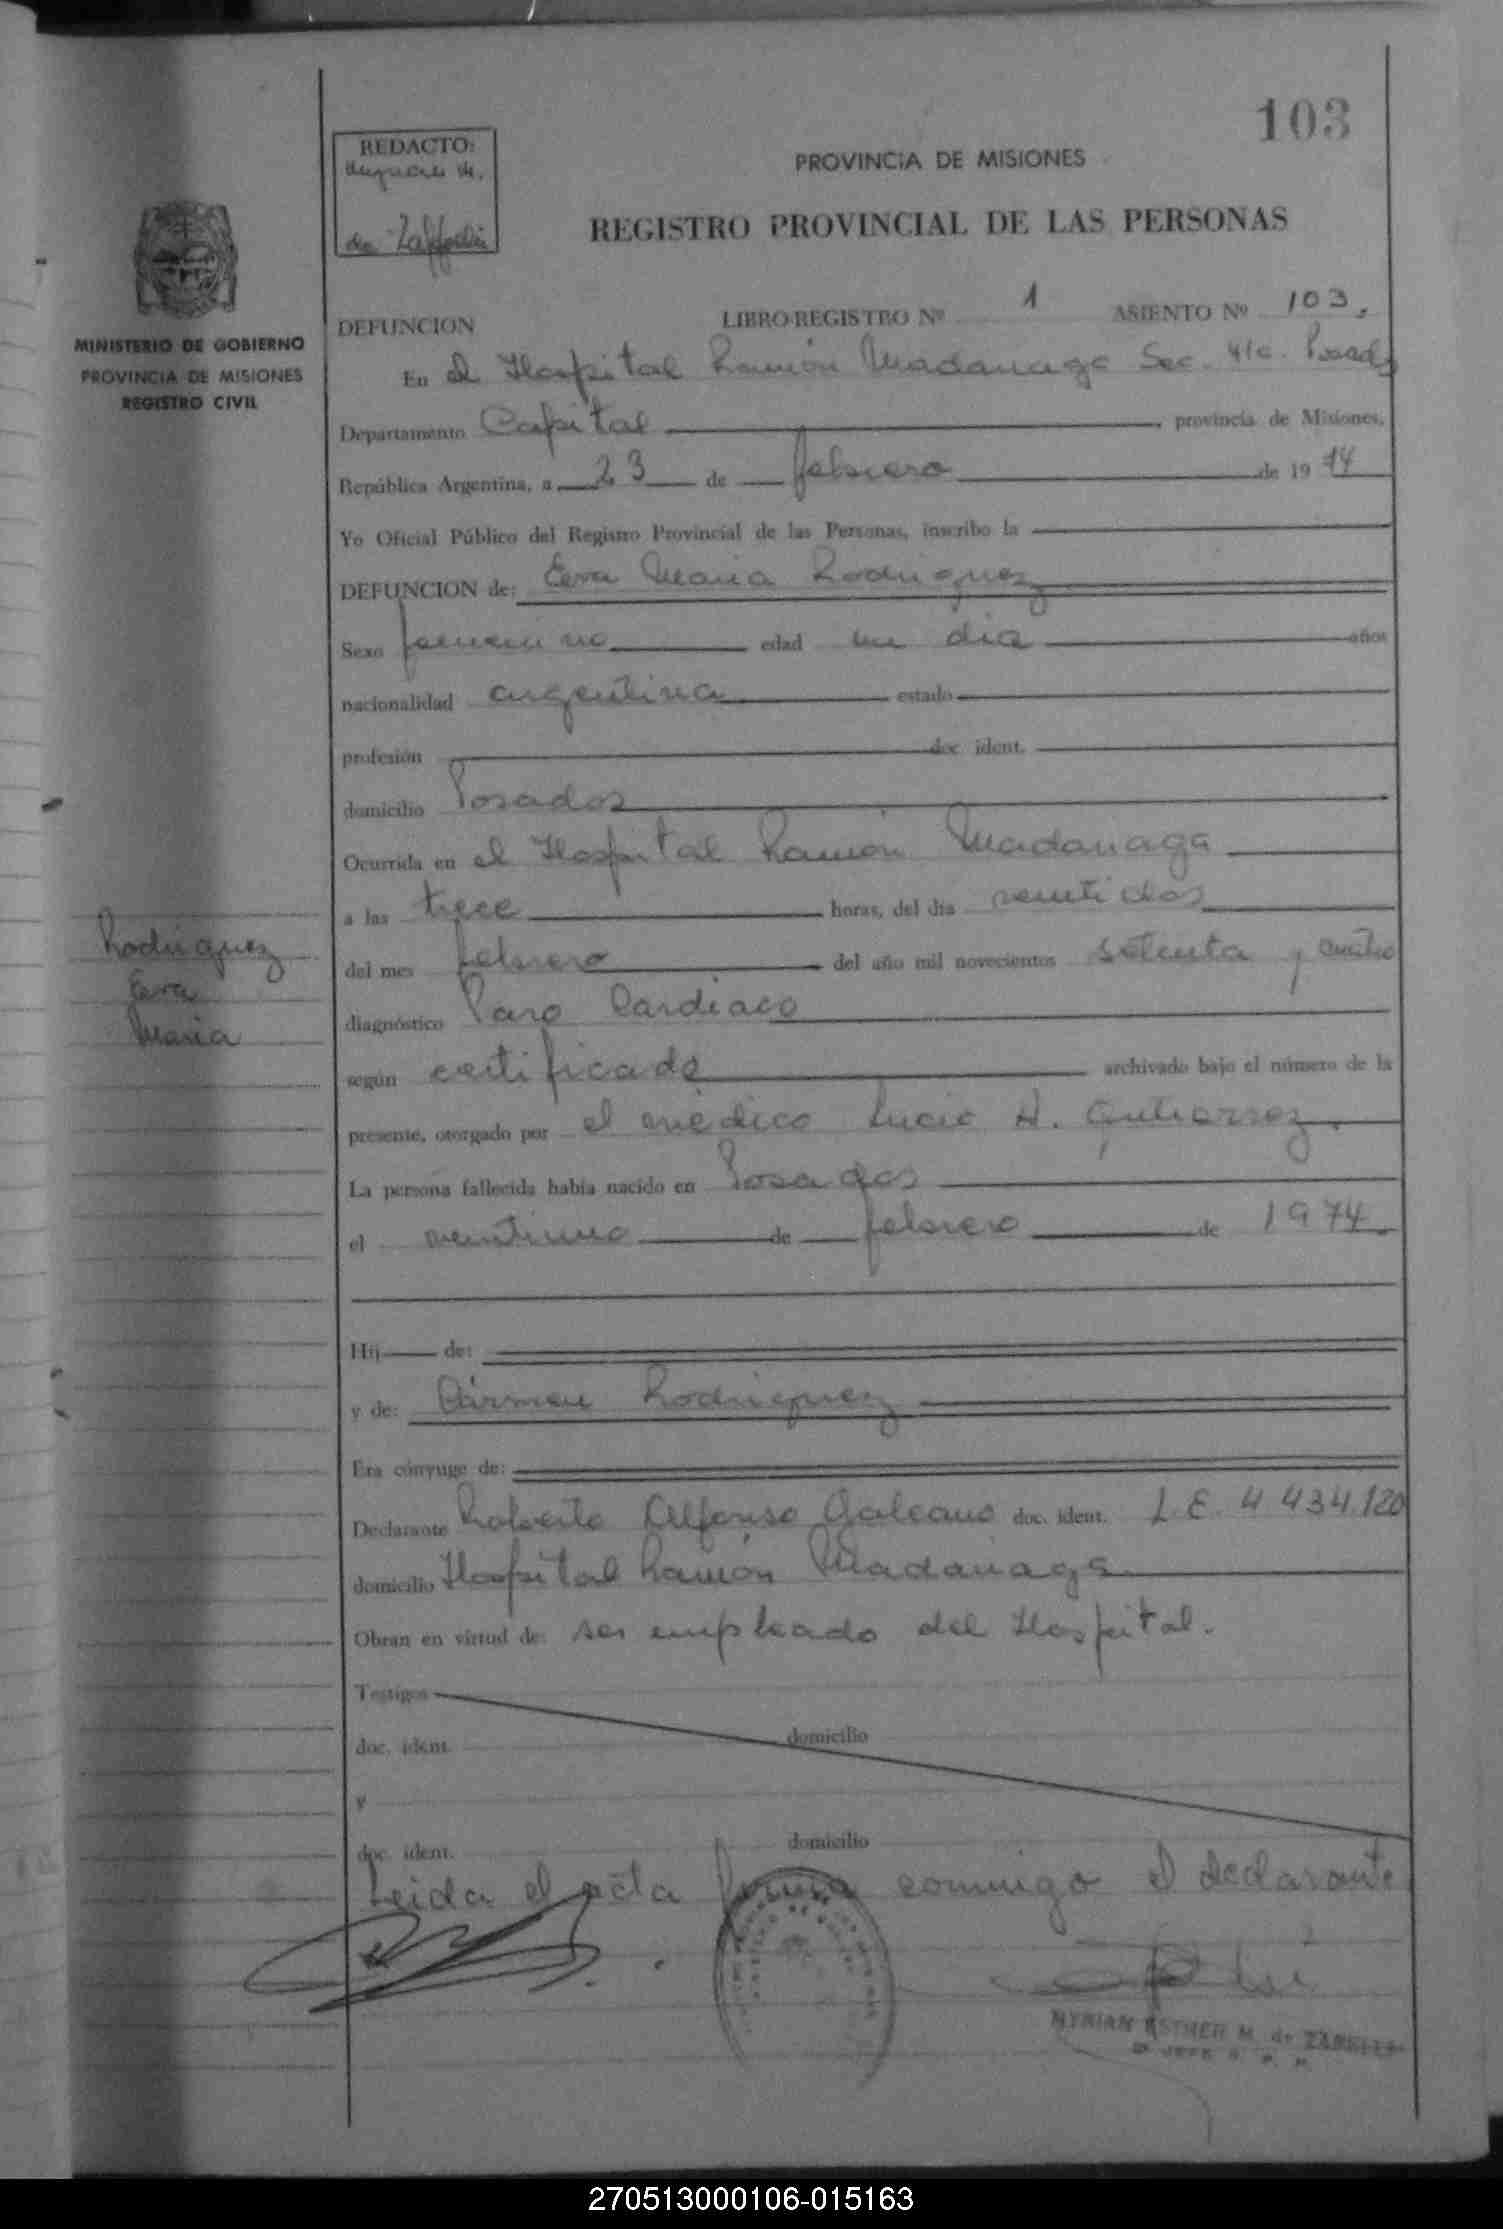 103
REDACTO:
de
PROVINCIA DE MISIONES
REGISTRO PROVINCIAL DE LAS PERSONAS
MINISTERIO DE GOBIERNO
PROVINCIA DE MISIONES
REGISTRO CIVIL
DEFUNCION LIBRO REGISTRO Nº 1 ASIENTO Nº 103.
En el Hospital Ramón Madariaga Sec. 4/a. Posadas
Departamento Capital provincia de Misiones,
República Argentina, a 23 de febrero de 19 74
Yo Oficial Público del Registro Provincial de las Personas, inscribo la
DEFUNCION de: Eva Maria Rodriguez
Sexo femenino edad un dia años
nacionalidad argentina estado
profesión doc. ident.
domicilio Posadas
Ocurrida en el Hospital Ramón Madariaga
a las trece horas, del día veintidos
del mes febrero del año mil novecientos setenta y cuatro
diagnóstico Paro Cardiaco
según certificado archivado bajo el número de la
presente, otorgado por el médico Lucio A. Gutierrez.
La persona fallecida había nacido en Posadas
el veintiuno de febrero de 1974.
Rodriguez
Eva
Maria
Hij de:
y de: Cármen Rodriguez
Era cónyuge de:
Declarante Roberto Alfonso Galeano doc. ident. L.E. 4 434.120
domicilio Hospital Ramón Madariaga
Obran en virtud de: ser empleado del Hospital.
Testigos
doc. ident. domicilio
y
doc. ident. domicilio
Leida el acta firma conmigo el declarante
MYRIAN ESTHER M. de
JEFE
270513000106-015163